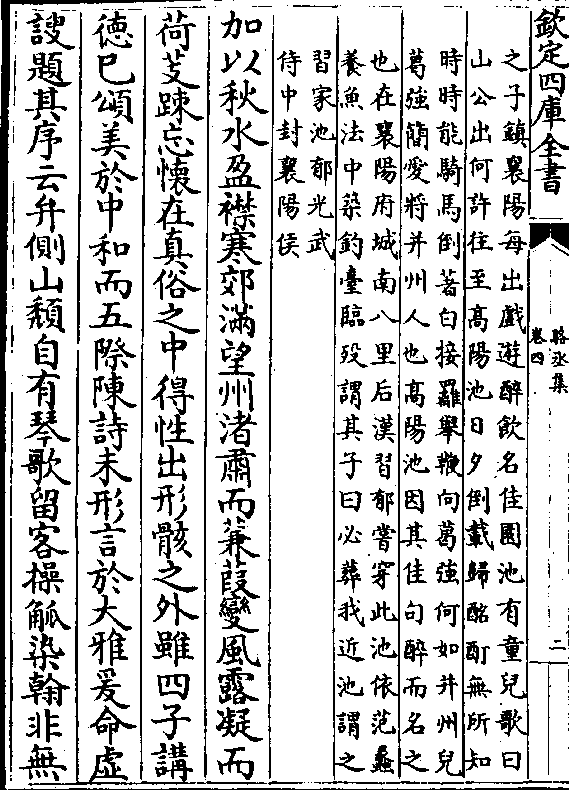 欽定四庫全書
駱丞集
卷四
二
之子鎮襄陽每出戲遊醉飲名佳園池有童兒歌曰
山公出何許往至髙陽池日夕倒載歸酩酊無所知
時時能騎馬倒著白接䍦舉鞭向葛強何如并州兒
葛強簡愛將并州人也髙陽池因其佳句醉而名之
也在襄陽府城南八里后漢習郁嘗穿此池依范蠡
養魚法中築釣臺臨殁謂其子曰必葬我近池謂之
習家池郁光武
侍中封襄陽侯
加以秋水盈襟寒郊滿望州渚肅而蒹葭變風露凝而
荷芰踈忘懷在真俗之中得性出形骸之外雖四子講
徳已頌美於中和而五際陳詩未形言於大雅爰命虛
謏題其序云弁側山頽自有琴歌留客操觚染翰非無